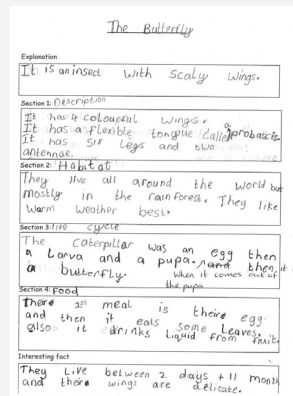 The Butterfly
Explanation
It is an insect with scaly wings.
Section 1: Description
It has 4 colourful wings.
It has a flexible tongue called a probascis.
It has six legs and two
antennae.
Section 2: Habitat
They live all around the world but
mostly in the rain forest. They like
warm weather best.
Section 3: life cycle
The caterpillar was an egg then
a Larva and a pupa. and then it is
a butterfly. when it comes out of
the pupa
Section 4: Food
Theire 1st meal is theire egg
and then it eats some leaves.
also it drinks Liquid from fruit.
Interesting fact
They Live between 2 days + 11 month
and their wings are delicate.